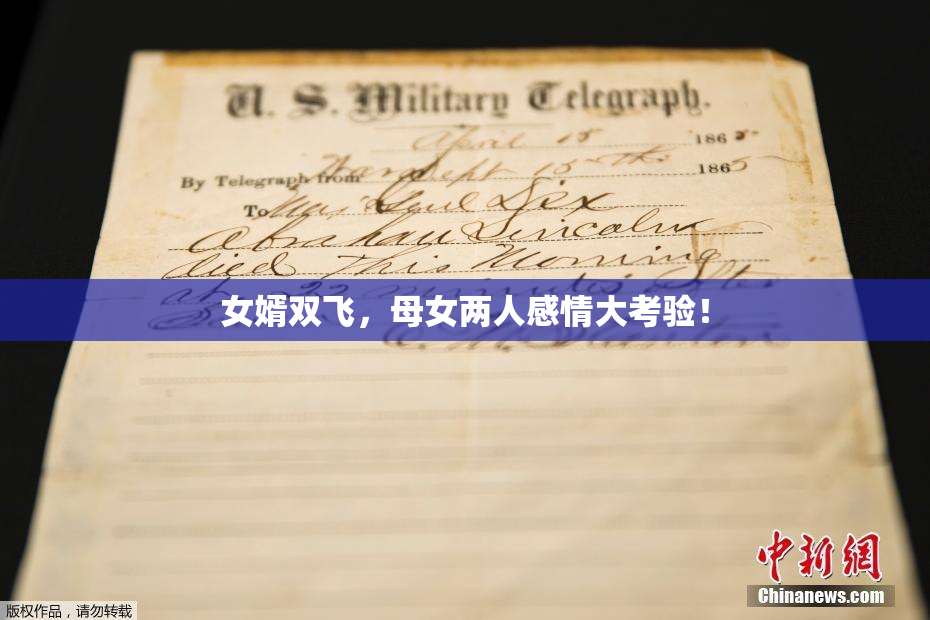 U. S. Military Telegraph.
April 15 1865
By Telegraph from War Dept 15th 1865
To Maj Genl Dix
Abraham Lincoln
died This Morning
at 22 minutes after
女婿双飞，母女两人感情大考验！
E. M. Stanton
中新網
Chinanews.com
版权作品，请勿转载